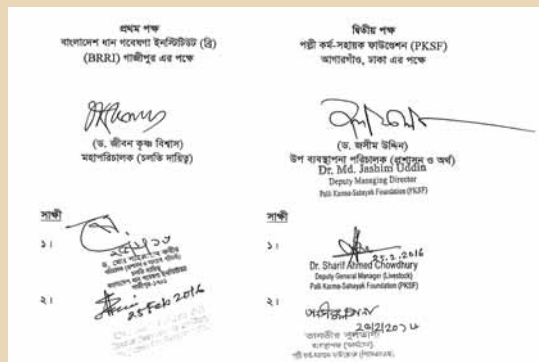 প্রথম পক্ষ
বাংলাদেশ ধান গবেষণা ইনস্টিটিউট (ব্রি)
(BRRI) গাজীপুর এর পক্ষে
(ড. জীবন কৃষ্ণ বিশ্বাস)
মহাপরিচালক (চলতি দায়িত্ব)
সাক্ষী
১।
২।
25 Feb 2016
দ্বিতীয় পক্ষ
পল্লী কর্ম-সহায়ক ফাউন্ডেশন (PKSF)
আগারগাঁও, ঢাকা এর পক্ষে
(ড. জসীম উদ্দিন)
উপ ব্যবস্থাপনা পরিচালক (প্রশাসন ও অর্থ)
Dr. Md. Jashim Uddin
Deputy Managing Director
Palli Karma-Sahayak Foundation (PKSF)
সাক্ষী
১।
25.2.2016
Dr. Sharif Ahmed Chowdhury
Deputy General Manager (Livestock)
Palli Karma-Sahayak Foundation (PKSF)
২।